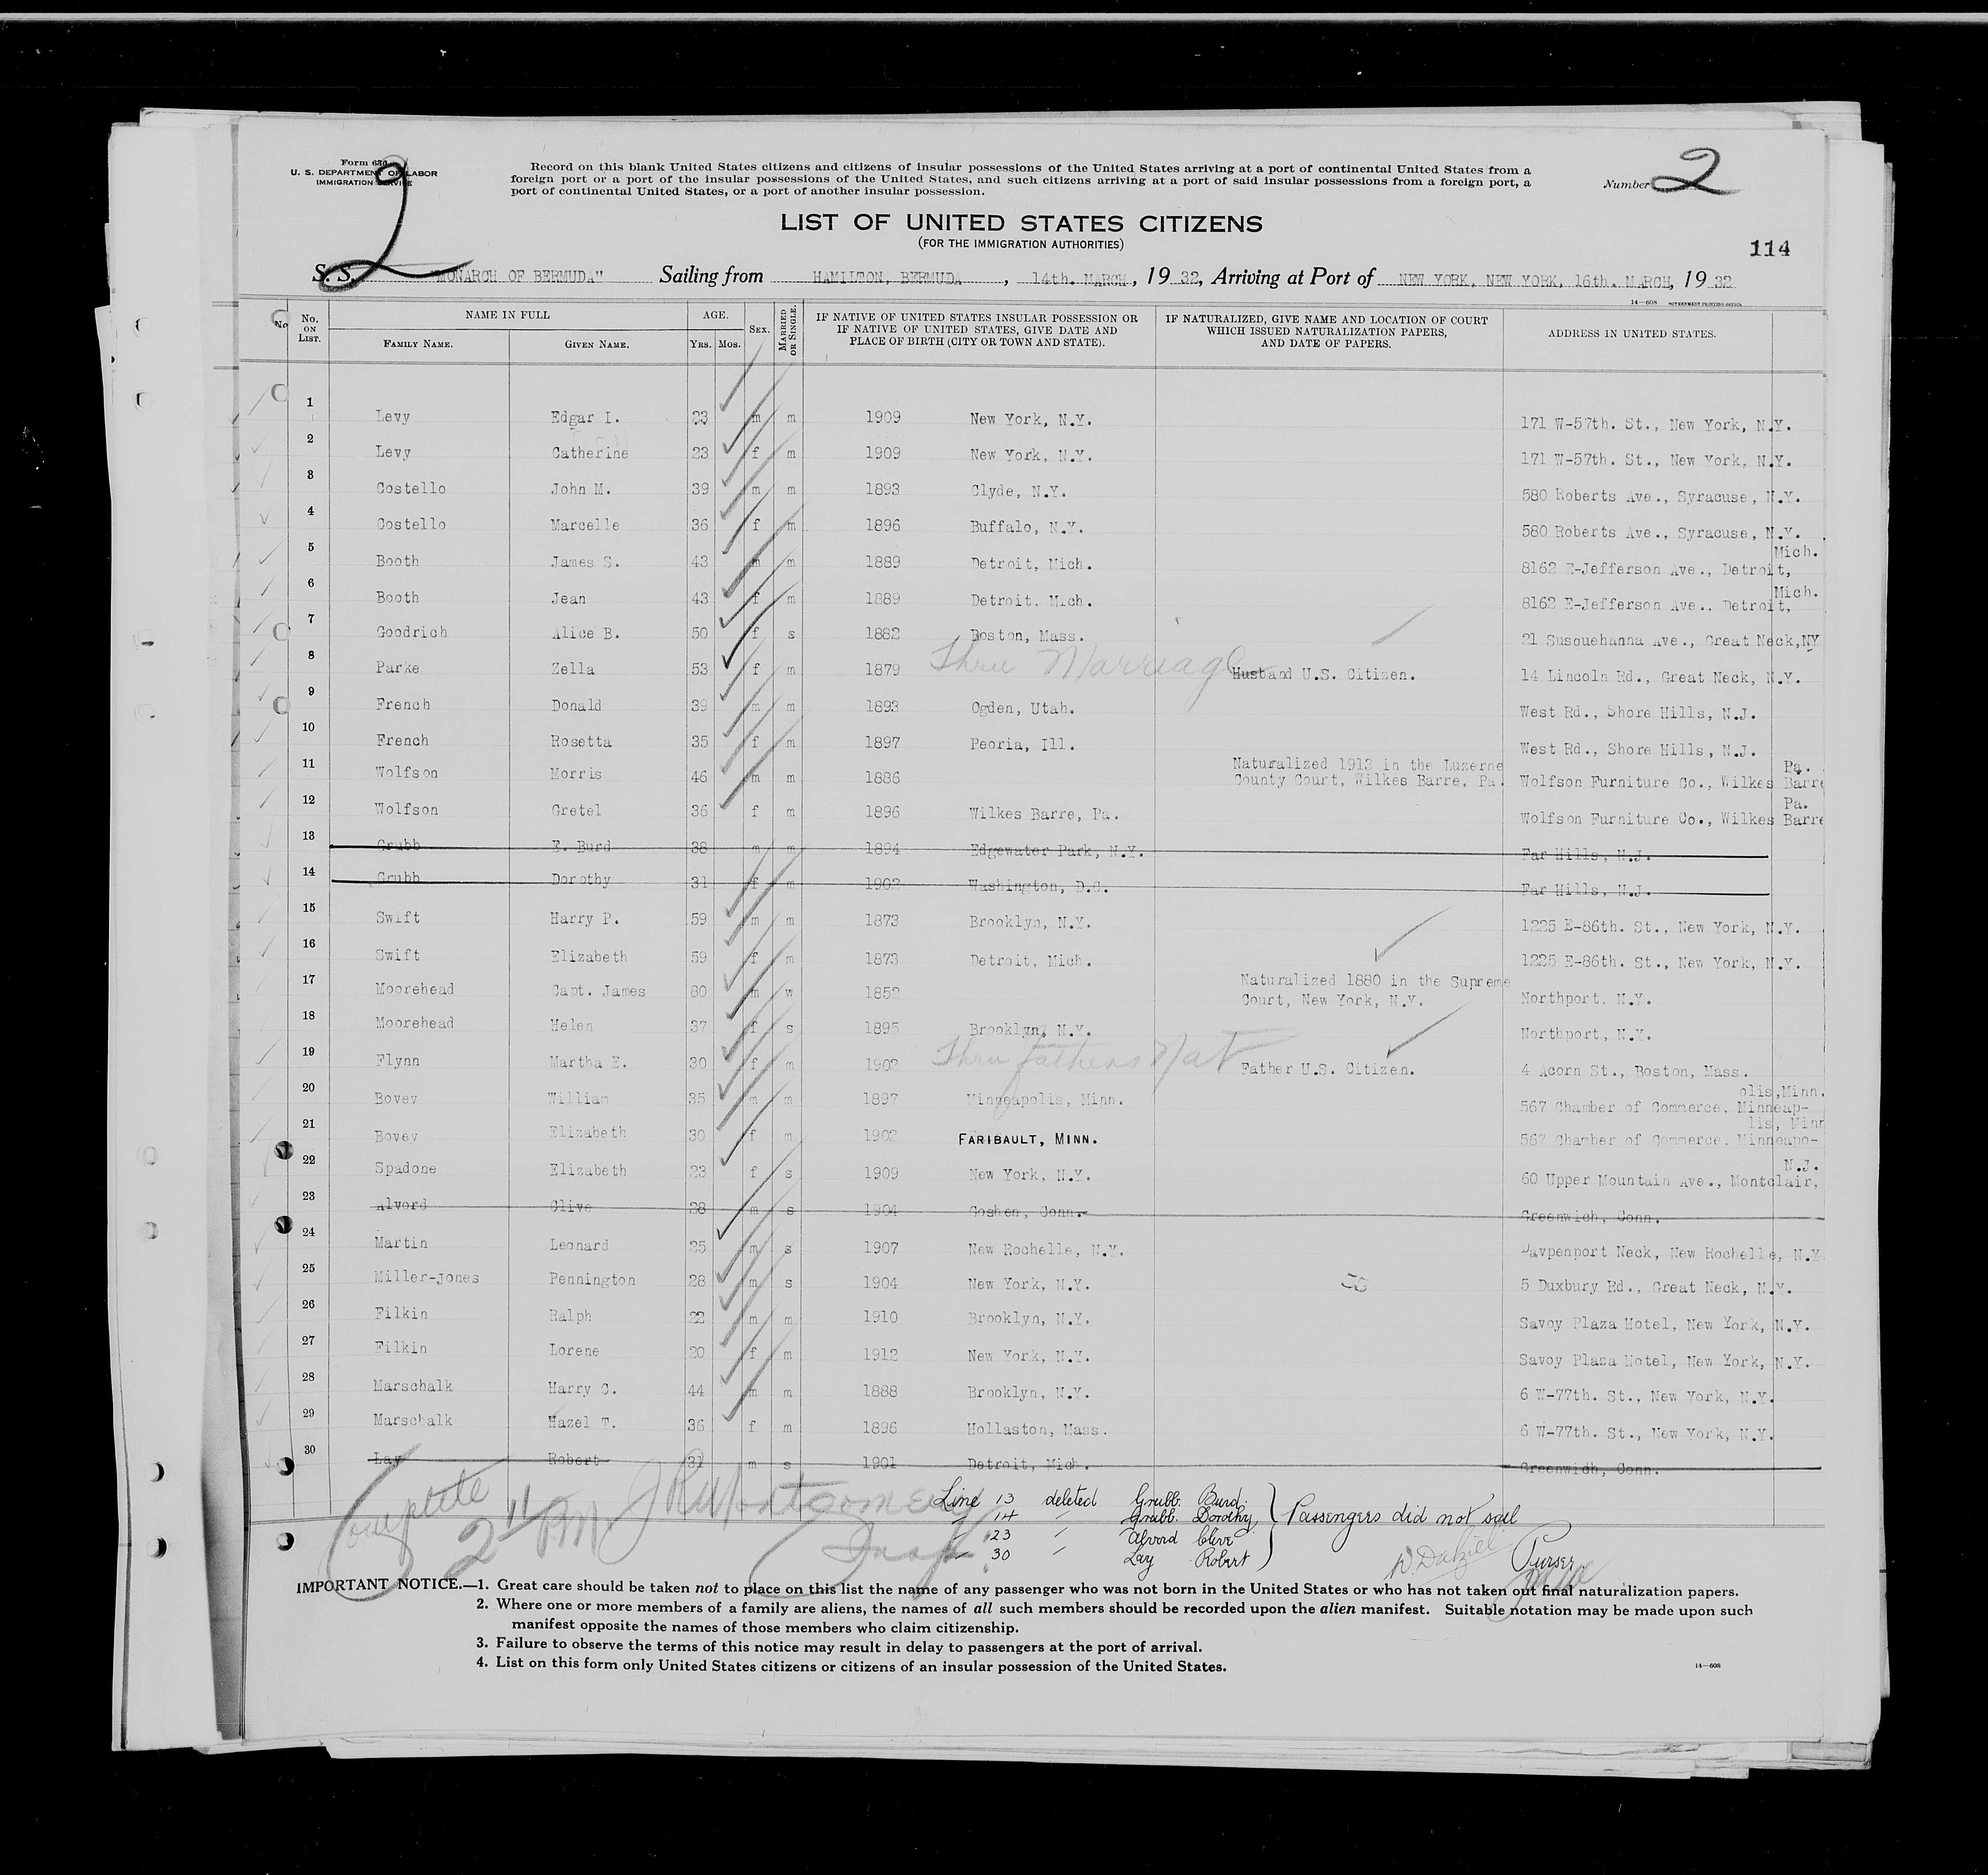 Form 630
U. S. DEPARTMENT OF LABOR
IMMIGRATION SERVICE
2
Record on this blank United States citizens and citizens of insular possessions of the United States arriving at a port of continental United States from a
foreign port or a port of the insular possessions of the United States, and such citizens arriving at a port of said insular possessions from a foreign port, a
port of continental United States, or a port of another insular possession.
Number 2
LIST OF UNITED STATES CITIZENS
(FOR THE IMMIGRATION AUTHORITIES)
114
S. S. "MONARCH OF BERMUDA" Sailing from HAMILTON, BERMUDA, 14th. MARCH, 1932, Arriving at Port of NEW YORK, NEW YORK, 16th. MARCH, 1932
14—608 GOVERNMENT PRINTING OFFICE
No. No. ON LIST. NAME IN FULL FAMILY NAME. GIVEN NAME. AGE. YRS. MOS. SEX. MARRIED OR SINGLE. IF NATIVE OF UNITED STATES INSULAR POSSESSION OR IF NATIVE OF UNITED STATES, GIVE DATE AND PLACE OF BIRTH (CITY OR TOWN AND STATE). IF NATURALIZED, GIVE NAME AND LOCATION OF COURT WHICH ISSUED NATURALIZATION PAPERS, AND DATE OF PAPERS. ADDRESS IN UNITED STATES.
1 Levy Edgar I. 23 m m 1909 New York, N.Y. 171 W-57th. St., New York, N.Y.
2 Levy Catherine 23 f m 1909 New York, N.Y. 171 W-57th. St., New York, N.Y.
3 Costello John M. 39 m m 1893 Clyde, N.Y. 580 Roberts Ave., Syracuse, N.Y.
4 Costello Marcelle 36 f m 1896 Buffalo, N.Y. 580 Roberts Ave., Syracuse, N.Y.
5 Booth James S. 43 m m 1889 Detroit, Mich. 8162 E-Jefferson Ave., Detroit, Mich.
6 Booth Jean 43 f m 1889 Detroit, Mich. 8162 E-Jefferson Ave., Detroit, Mich.
7 Goodrich Alice B. 50 f s 1882 Boston, Mass. 21 Susquehanna Ave., Great Neck,NY
8 Parke Zella 53 f m 1879 Thru Marriage Husband U.S. Citizen. 14 Lincoln Rd., Great Neck, N.Y.
9 French Donald 39 m m 1893 Ogden, Utah. West Rd., Shore Hills, N.J.
10 French Rosetta 35 f m 1897 Peoria, Ill. West Rd., Shore Hills, N.J.
11 Wolfson Morris 46 m m 1886 Naturalized 1913 in the Luzerne County Court, Wilkes Barre, Pa. Wolfson Furniture Co., Wilkes Barre Pa.
12 Wolfson Gretel 36 f m 1896 Wilkes Barre, Pa. Wolfson Furniture Co., Wilkes Barre Pa.
13 Grubb E. Burd 38 m m 1894 Edgewater Park, N.Y. Far Hills, N.J.
14 Grubb Dorothy 31 f m 1902 Washington, D.C. Far Hills, N.J.
15 Swift Harry P. 59 m m 1873 Brooklyn, N.Y. 1225 E-86th. St., New York, N.Y.
16 Swift Elizabeth 59 f m 1873 Detroit, Mich. 1225 E-86th. St., New York, N.Y.
17 Moorehead Capt. James 80 m w 1852 Naturalized 1880 in the Supreme Court, New York, N.Y. Northport, N.Y.
18 Moorehead Helen 37 f s 1895 Brooklyn, N.Y. Northport, N.Y.
19 Flynn Martha E. 30 f m 1902 Thru fathers Nat Father U.S. Citizen. 4 Acorn St., Boston, Mass.
20 Bovey William 35 m m 1897 Minneapolis, Minn. 567 Chamber of Commerce, Minneap-olis,Minn.
21 Bovey Elizabeth 30 f m 1902 FARIBAULT, MINN. 567 Chamber of Commerce, Minneapo-lis, Minn
22 Spadone Elizabeth 23 f s 1909 New York, N.Y. 60 Upper Mountain Ave., Montclair, N.J.
23 Alvord Clive 28 m s 1904 Goshen, Conn. Greenwich, Conn.
24 Martin Leonard 25 m s 1907 New Rochelle, N.Y. Davpenport Neck, New Rochelle, N.Y.
25 Miller-Jones Pennington 28 m s 1904 New York, N.Y. 5 Duxbury Rd., Great Neck, N.Y.
26 Filkin Ralph 22 m m 1910 Brooklyn, N.Y. Savoy Plaza Hotel, New York, N.Y.
27 Filkin Lorene 20 f m 1912 New York, N.Y. Savoy Plaza Hotel, New York, N.Y.
28 Marschalk Harry C. 44 m m 1888 Brooklyn, N.Y. 6 W-77th. St., New York, N.Y.
29 Marschalk Hazel T. 36 f m 1896 Hollaston, Mass. 6 W-77th. St., New York, N.Y.
30 Lay Robert 31 m s 1901 Detroit, Mich. Greenwidh, Conn.
Complete 2 11 PM JR Montgomery Insp.
Line 13 deleted Grubb. Burd.
" 14 " Grubb. Dorothy, Passengers did not sail
" 23 " Alvord Clive
" 30 " Lay Robert
W. Dalziel Purser
IMPORTANT NOTICE.—1. Great care should be taken not to place on this list the name of any passenger who was not born in the United States or who has not taken out final naturalization papers.
2. Where one or more members of a family are aliens, the names of all such members should be recorded upon the alien manifest. Suitable notation may be made upon such
manifest opposite the names of those members who claim citizenship.
3. Failure to observe the terms of this notice may result in delay to passengers at the port of arrival.
4. List on this form only United States citizens or citizens of an insular possession of the United States.
14—608